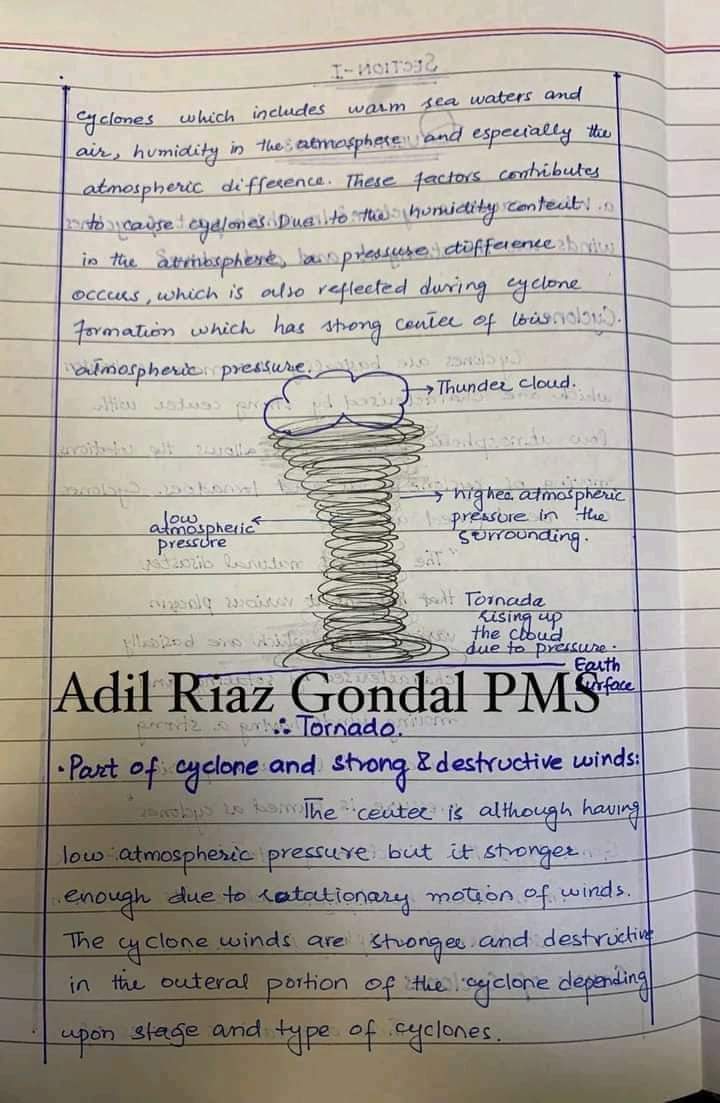 SECTION-I
cyclones which includes warm sea waters and
air, humidity in the atmosphere and especially the
atmospheric difference. These factors contributes
to cause cyclones. Due to the humidity content
in the atmosphere, a pressure difference
occurs, which is also reflected during cyclone
formation which has strong center of
atmospheric pressure.
Thunder cloud.
higher atmospheric
pressure in the
surrounding.
low
atmospheric
pressure
Tornada
rising up
the cloud
due to pressure.
Earth
surface
Adil Riaz Gondal PMS
∴ Tornado.
• Part of cyclone and strong & destructive winds:
The center is although having
low atmospheric pressure but it stronger
enough due to rotationary motion of winds.
The cyclone winds are stronger and destructive
in the outeral portion of the cyclone depending
upon stage and type of cyclones.